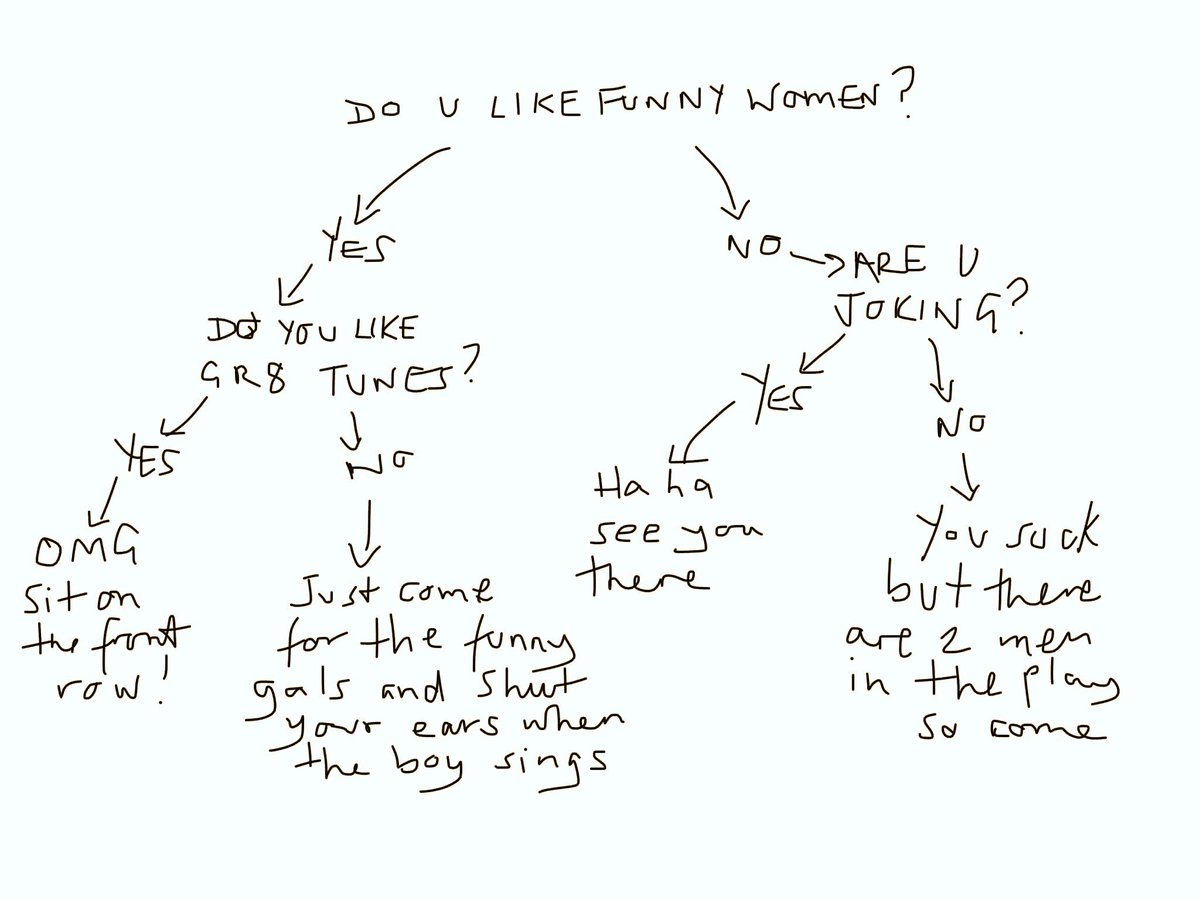 DO U LIKE FUNNY WOMEN?
YES
DO YOU LIKE
GR8 TUNES?
YES
OMG
sit on
the front
row!
NO
Just come
for the funny
gals and shut
your ears when
the boy sings
NO
ARE U
JOKING?
YES
Ha ha
see you
there
NO
You suck
but there
are 2 men
in the play
so come